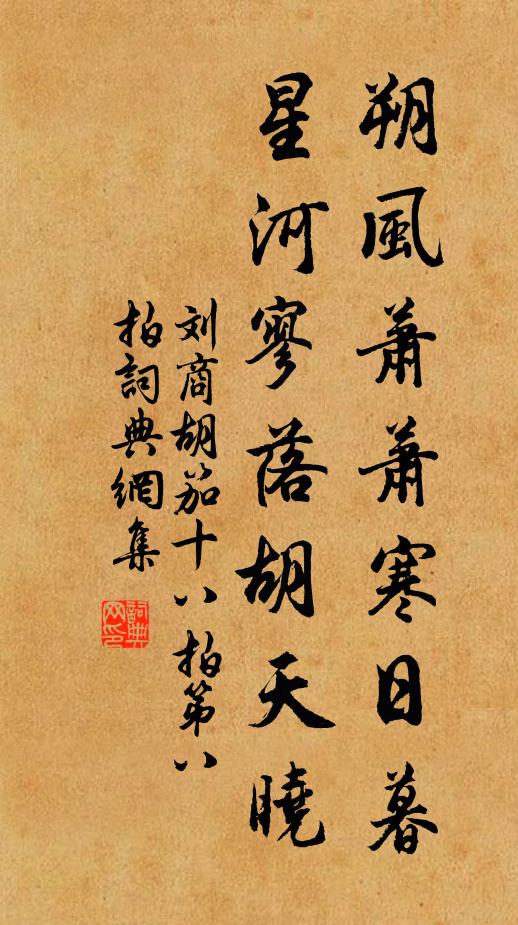 朔風蕭蕭寒日暮
星河寥落胡天曉
刘商胡笳十八拍第八
拍詞典網集
詞典网印